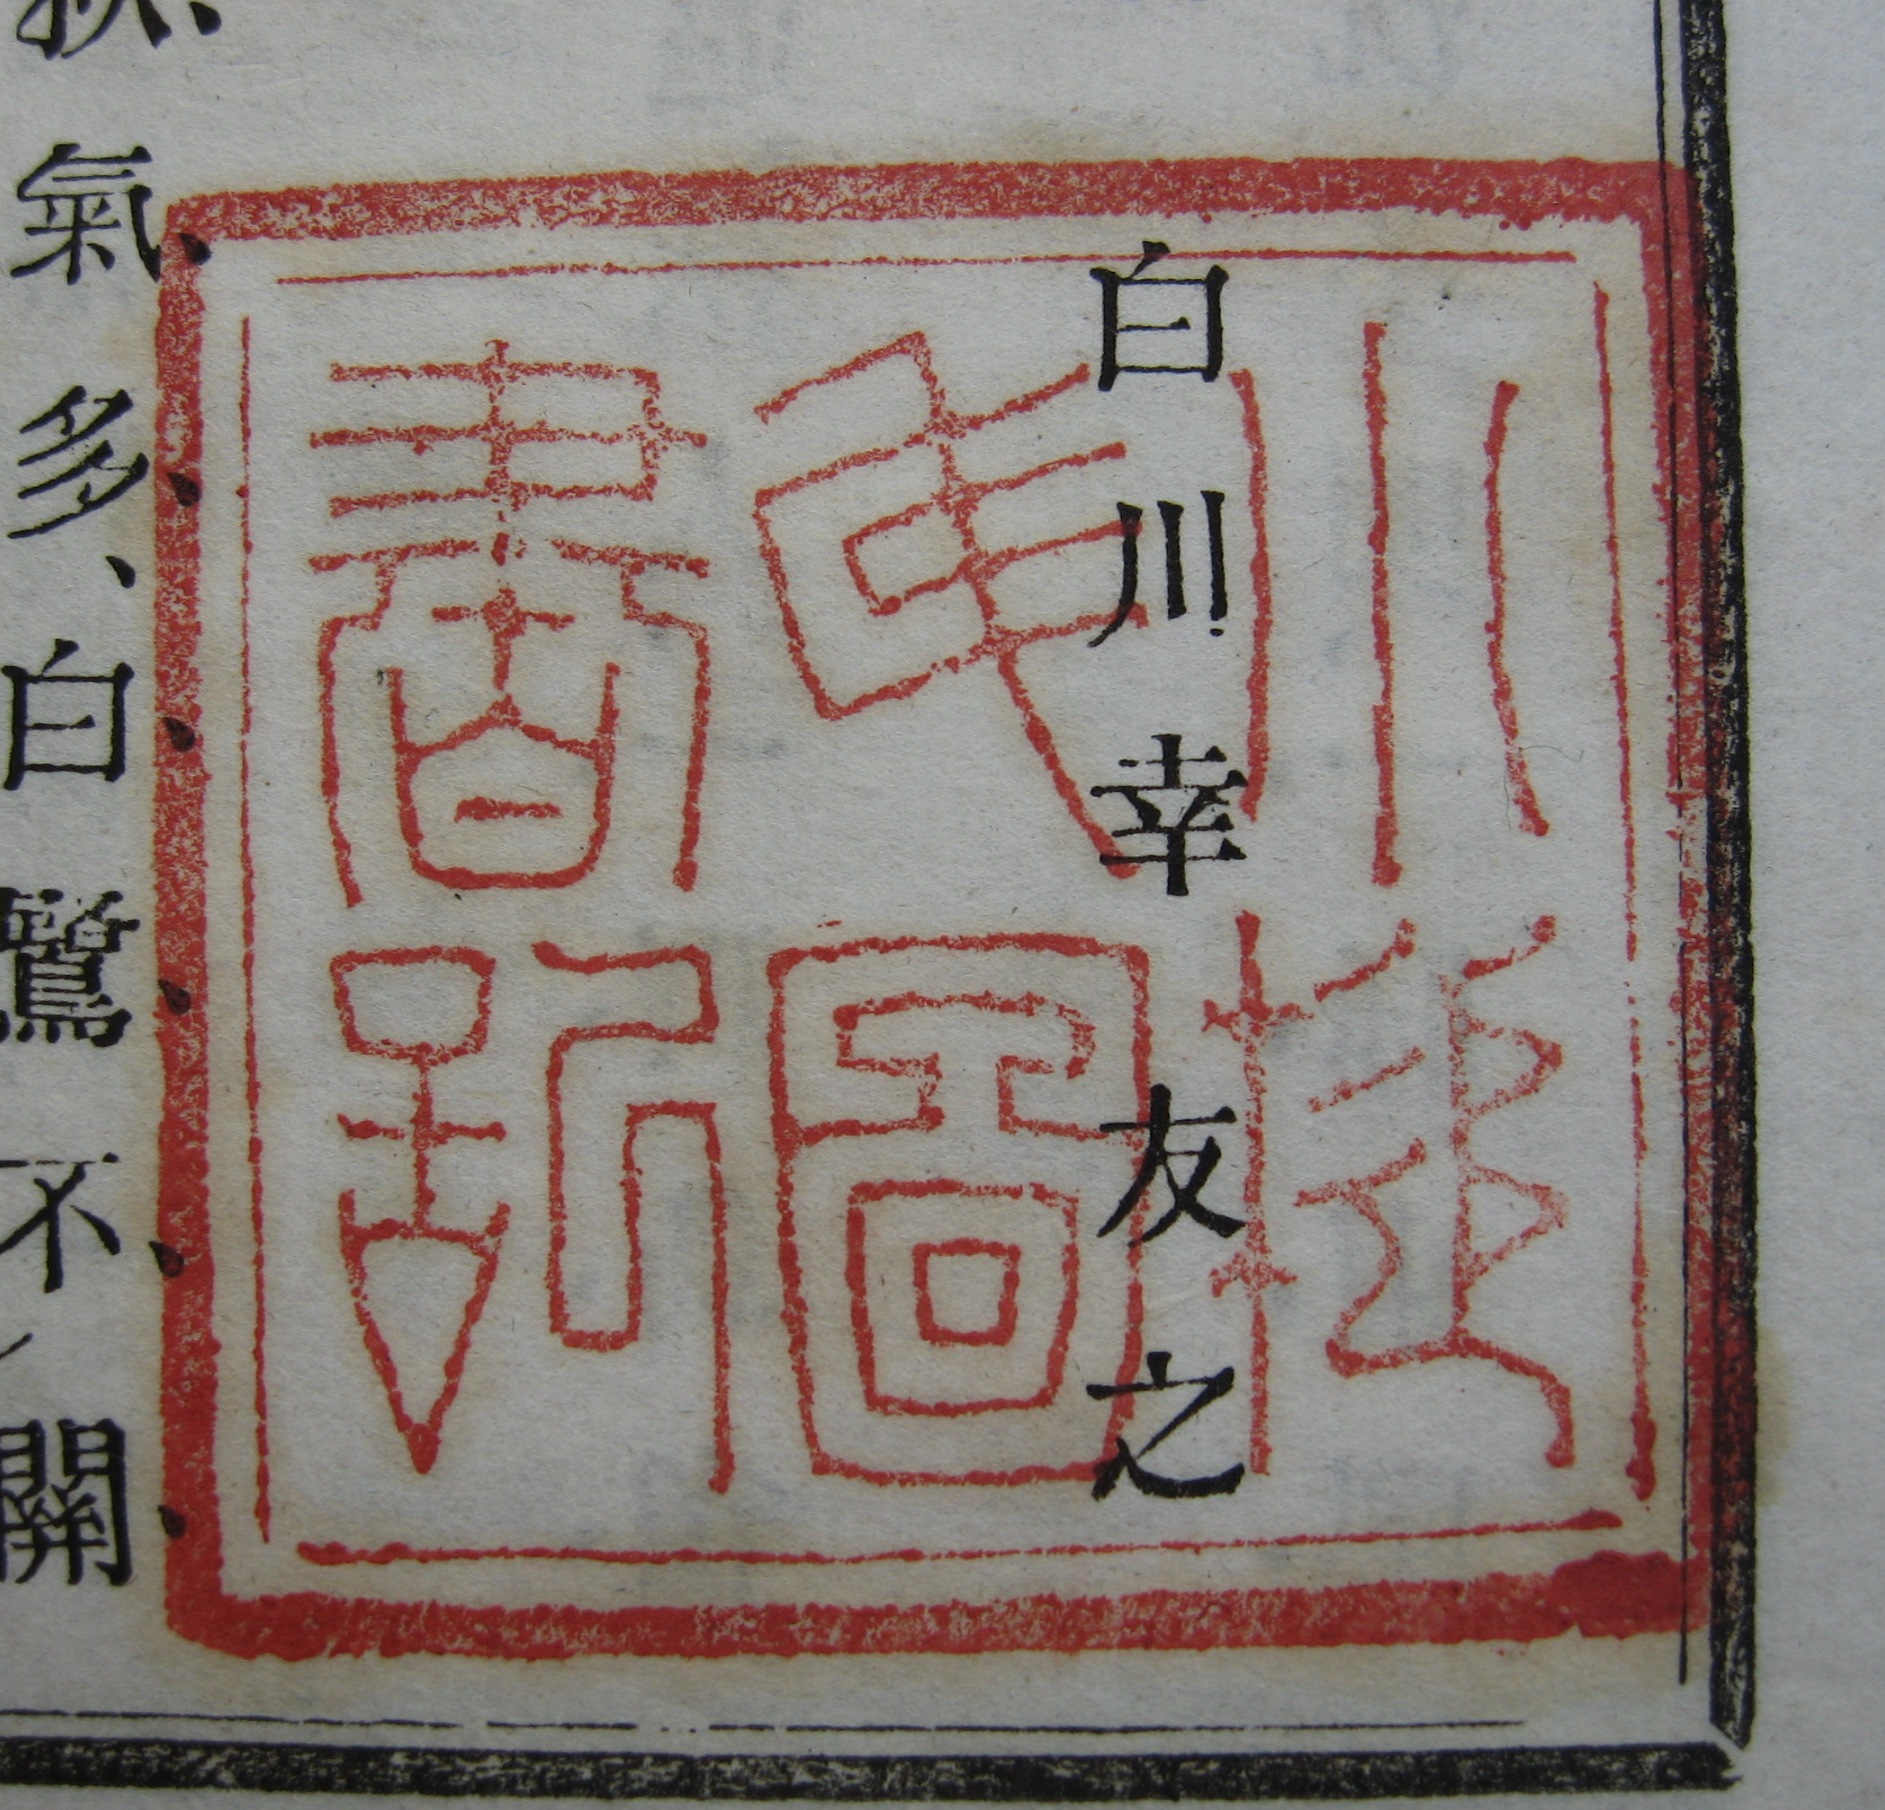 白川幸友之
秋氣多、白鷺不關
圖
書印